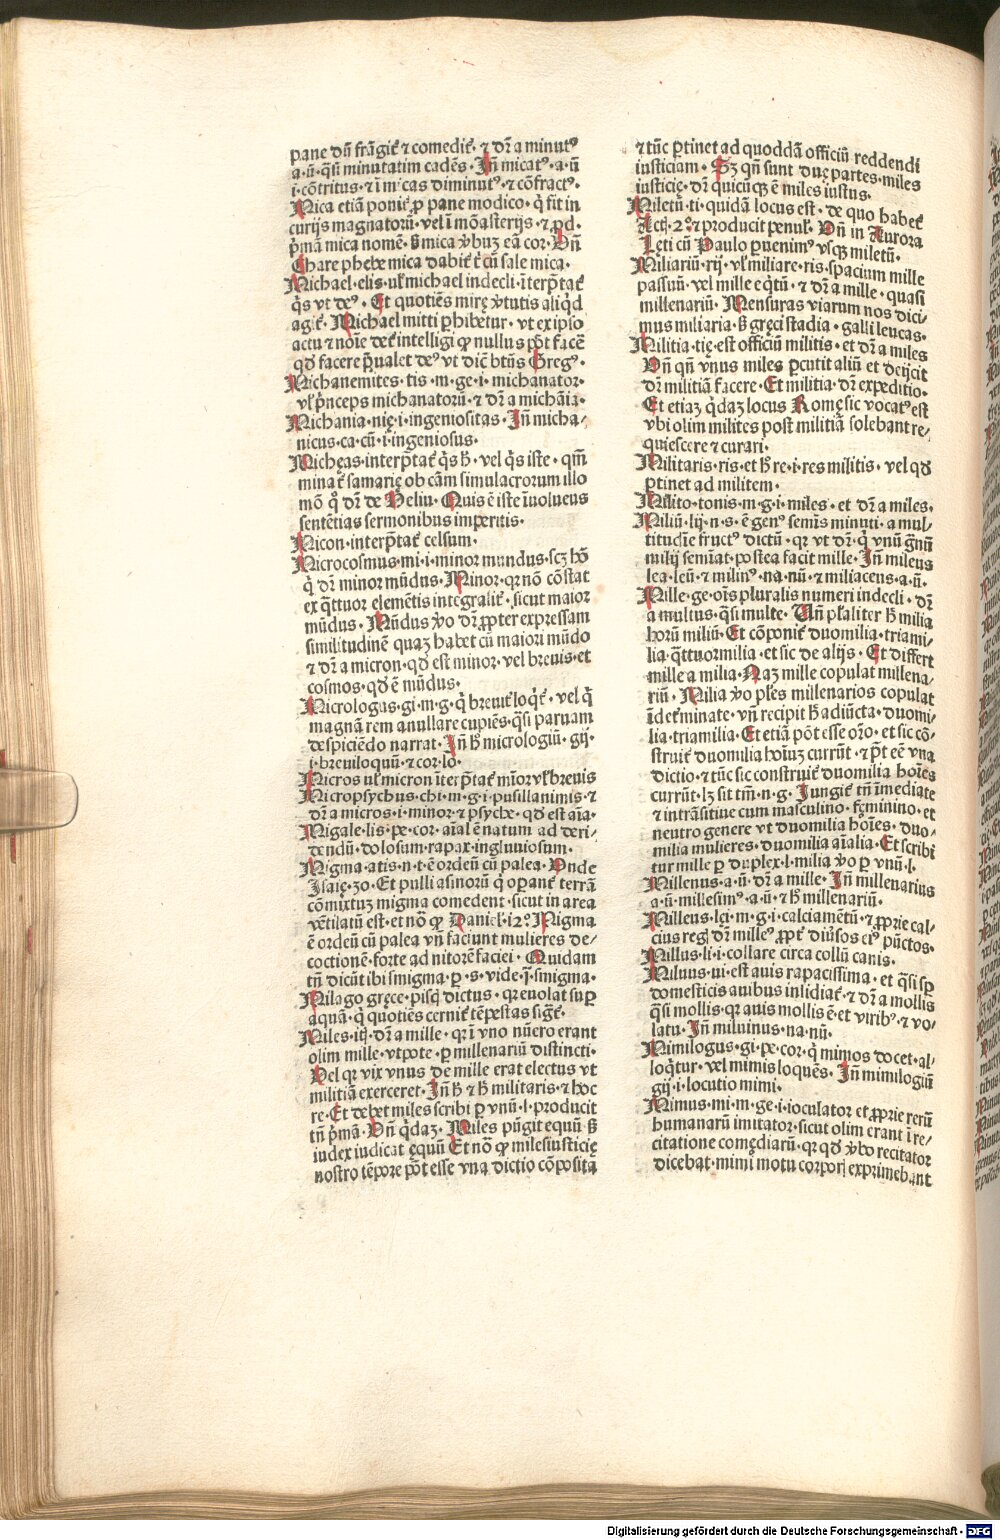 pane dū frāgit᷑ ⁊ comedit᷑. ⁊ dr̄ a minutꝰ
a·ū·qūi minutatim cadēs. Jn̄ micatꝰ·a·ū
i·cōtritus·⁊ i micas diminutꝰ·⁊ cōfractꝰ.
Mica etiā ponit᷑ ꝓ pane modico·q̄ fit in
curijs magnatorū·vel ī mōasterijs·⁊ ꝓd.
p̄mā mica nomē·ẜ mica v̓buꝫ eā cor·Vn̄
Chare phebe mica dabit᷑ t̄ cū sale mica.
Michael·elis·vl̓ michael indecli·īterp̄tat᷑
q̄s vt deꝰ. Et quotiēs mirę v̓tutis aliq̇d
agit᷑. Michael mitti ꝑhibetur·vt ex ipso
actu ⁊ noīe det᷑ intelligi ꝙ nullus pōt facē
qd̓ facere p̄ualet deꝰ vt dic̄ btūs Gregꝰ.
Michanemites·tis·m·ge·i·michanator·
vl̓ p̄nceps michanatorū·⁊ dr̄ a michāia·
Michania·nię·i·ingeniositas·Jn̄ micha⸗
nicus·ca·cū·i·ingeniosus·
Michęas·interp̄tat᷑ q̄s h̄·vel q̄s iste·qm̄
minat᷑ samarię ob cām simulacrorum illo
mō q̊ dr̄ de Heliu·Quis ē iste īuolueus
sentētias sermonibus imperitis·
Micon·interp̄tat᷑ celsum·
Microcosmus·mi·i·minor mundus·scꝫ hō
q̇ dr̄ minor mūdus·Minor·qꝛ nō cōstat
ex q̄ttuor elemētis integralit᷑·sicut maior
mūdus·Mūdus v̓o dr̄ ꝓpter expressam
similitudinē quaꝫ habet cū maiori mūdo
⁊ dr̄ a micron·qd̓ est minor·vel breuis·et
cosmos·qd̓ ē mūdus·
Micrologus·gi·m·g·q̇ breuit᷑ loq̇t᷑·vel q̇
magnā rem anullare cupiēs·q̄si paruam
despiciēdo narrat·Jn̄ h̓ micrologiū·gij·
i·breuiloquū·⁊ cor·lo·
Micros vl̓ micron īterp̄tat᷑ mīor vl̓ breuis
Micropsychus·chi·m·g·i·pusillanimis·⁊
dr̄ a micros·i·minor·⁊ psyche·qd̓ est aīa·
Migale·lis·pe·cor·aīal ē natum ad deri⸗
dendū·dolosum·rapax·ingluuiosum·
Migma·atis·n·t·ē ordeū cū palea·Vnde
Jsaię·30·Et pulli asinorū q̇ oꝑant᷑ terrā
cōmixtuꝫ migma comedent·sicut in area
vētilatū est·et nō ꝙ Daniel·12º·Migma
ē ordeū cū palea vn̄ faciunt mulieres de⸗
coctionē·forte ad nitorē faciei·Quidam
tn̄ dicūt ibi smigma·ꝑ·s·vide·ī·smigma·
Milago gręce·pisq̄ dictus·qꝛ euolat suꝑ
aquā·q̇ quotiēs cernit᷑ tēpestas sigt᷑·
Miles·itꝭ·dr̄ a mille·qꝛ ī vno nūero erant
olim mille·vtpote·ꝑ millenariū distincti·
Vel qꝛ vix vnus de mille erat electus vt
militiā exerceret·Jn̄ h̓ ⁊ h̓ militaris·⁊ hoc
re·Et debet miles scribi ꝑ vnū·l·producit
tn̄ p̄mā·Vn̄ q̇daꝫ·Miles pūgit equū ẜ
iudex iudicat ęquū Et nō ꝙ milesiusticię
nostro tēpore pōt esse vna dictio cōposita
⁊ tūc ꝑtinet ad quoddā officiū reddendi
iusticiam·Sꝫ qn̄ sunt duę partes·miles
iusticię·dr̄ quicūqꝫ ē miles iustus·
Miletū·ti·quidā locus est·de quo habet᷑
Actꝭ·2º·⁊ producit penul̓·Vn̄ in Aurora
Lęti cū Paulo puenimꝰ vsqꝫ miletū·
Miliariū·rij·vl̓ miliare·ris·spacium mille
passuū·vel mille eq̇tū·⁊ dr̄ a mille·quasi
millenariū·Mensuras viarum nos dici⸗
mus miliaria·ẜ gręci stadia·galli leucas·
Militia·tię·est officiū militis·et dr̄ a miles
Vn̄ qn̄ vnus miles ꝑcutit aliū et deijcit
dr̄ militiā facere·Et militia·dr̄ expeditio·
Et etiaꝫ q̇daꝫ locus Romę sic vocatꝰ est
vbi olim milites post militiā solebant re⸗
quiescere ⁊ curari·
Militaris·ris·et h̓ re·i·res militis·vel qd̓
ꝑtinet ad militem·
Milito·tonis·m·g·i·miles·et dr̄ a miles·
Miliū·lij·n·s·ē genꝰ semīs minuti·a mul⸗
titudīe fructꝰ dictū·qꝛ vt dr̄·q̇ vnū g̓nū
milij semīat·postea facit mille·Jn̄ mileus
lea·leū·⁊ milinꝰ·na·nū·⁊ miliaceus·a·ū·
Mille·ge·oīs pluralis numeri indecli·dr̄
a multus·q̄si multe·Vn̄ pl̓aliter h̓ milia
horū miliū·Et cōponit᷑ duomilia·triami⸗
lia·q̄ttuormilia·et sic de alijs·Et differt
mille a milia·Naꝫ mille copulat millena⸗
riū·Milia v̓o pl̓es millenarios copulat
īdet᷑minate·vn̄ recipit h̓ adiūcta·duomi⸗
lia·triamilia·Et etiā pōt esse or̄o·et sic cō⸗
struit᷑ duomilia hoīuꝫ currūt·⁊ p̄t eē vna
dictio·⁊ tūc sic construit᷑ duomilia hoīes
currūt·lꝫ sit tm̄·n·g·Jungit᷑ tn̄ īmediate
⁊ intrāsitiue cum masculino·fęminino·et
neutro genere vt duomilia hoīes·duo⸗
milia mulieres·duomilia aīalia·Et scribi
tur mille ꝑ duplex·l·milia v̓o ꝑ vnū·l·
Millenus·a·ū·dr̄ a mille·Jn̄ millenarius
a·ū·millesimꝰ·a·ū·⁊ h̓ millenariū·
Milleus·lei·m·g·i·calciamētū·⁊ ꝓprie cal⸗
cius regꝭ dr̄ milleꝰ ꝓpt᷑ diūsos eiꝰ pūctos·
Millus·li·i·collare circa collū canis·
Miluus·ui·est auis rapacissima·et q̄si sꝑ
domesticis auibus insidiat᷑·⁊ dr̄ a mollis
q̄si mollis·qꝛ auis mollis ē·et viribꝰ·⁊ vo⸗
latu·Jn̄ miluinus·na·nū·
Mimilogus·gi·pe·cor·q̇ mimos docet·al⸗
loq̇tur·vel mimis loquēs·Jn̄ mimilogiū
gij·i·locutio mimi·
Mimus·mi·m·ge·i·ioculator et ꝓprie rerū
humanarū imitator·sicut olim erant ī re⸗
citatione comędiarū·qꝛ qd̓ v̓bo recitator
dicebat·mimi motu corporꝭ exprimebant
Digitalisierung gefördert durch die Deutsche Forschungsgemeinschaft - DFG